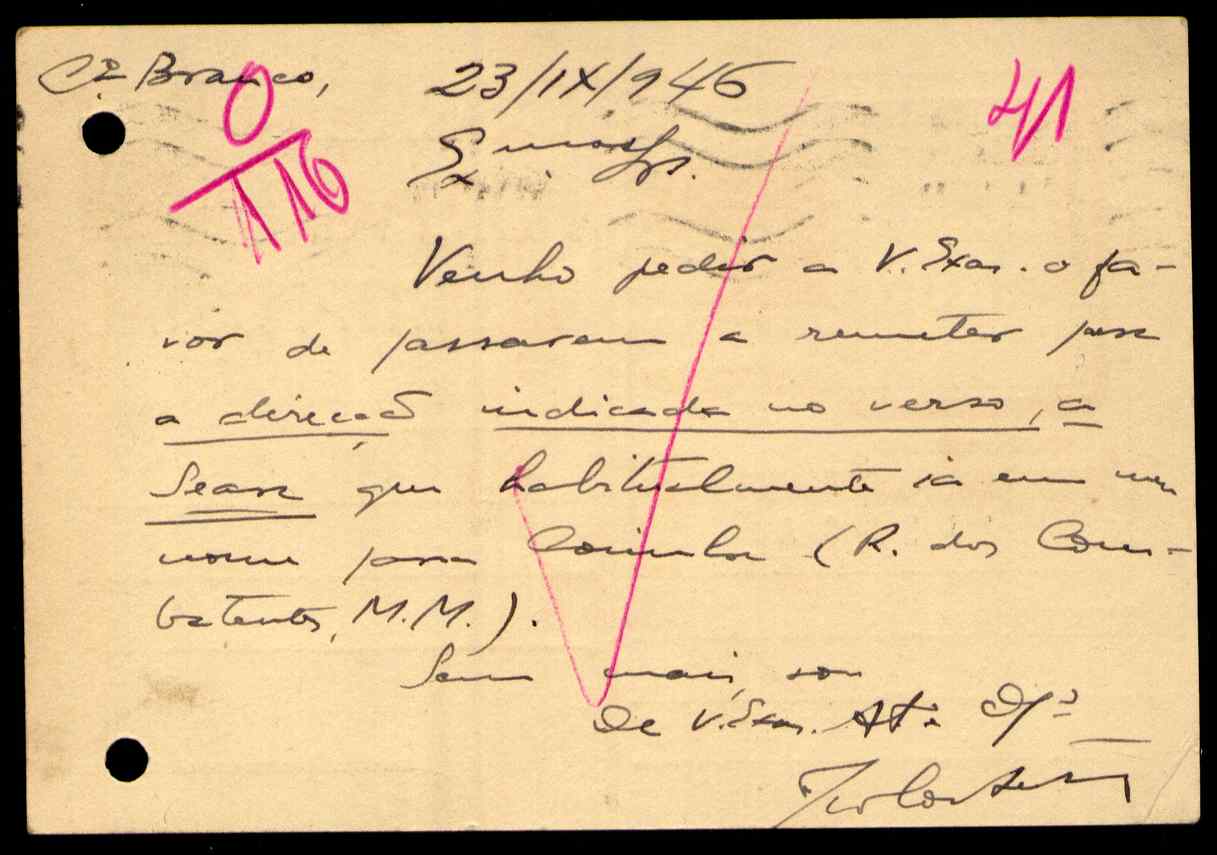 C. Branco, 23/IX/946
0/116
41
Exmos Srs.
Venho pedir a V. Exas. o fa-
vor de passarem a remeter para
a direcção indicada no verso, a
Seara que habitualmente ia em meu
nome para Coimbra (R. dos Com-
batentes, M.M.).
Sem mais, sou
De V. Exas. At.